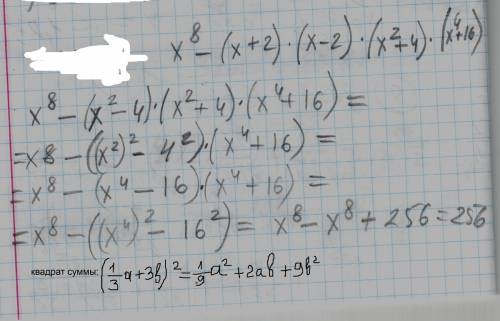 x⁸ − (x+2)·(x−2)·(x²+4)·(x⁴+16)
x⁸ − (x²−4)·(x²+4)·(x⁴+16) =
= x⁸ − ((x²)² − 4²)·(x⁴+16) =
= x⁸ − (x⁴ − 16)·(x⁴+16) =
= x⁸ − ((x⁴)² − 16²) = x⁸ − x⁸ + 256 = 256
квадрат суммы: (1/3 a + 3b)² = 1/9 a² + 2ab + 9b²